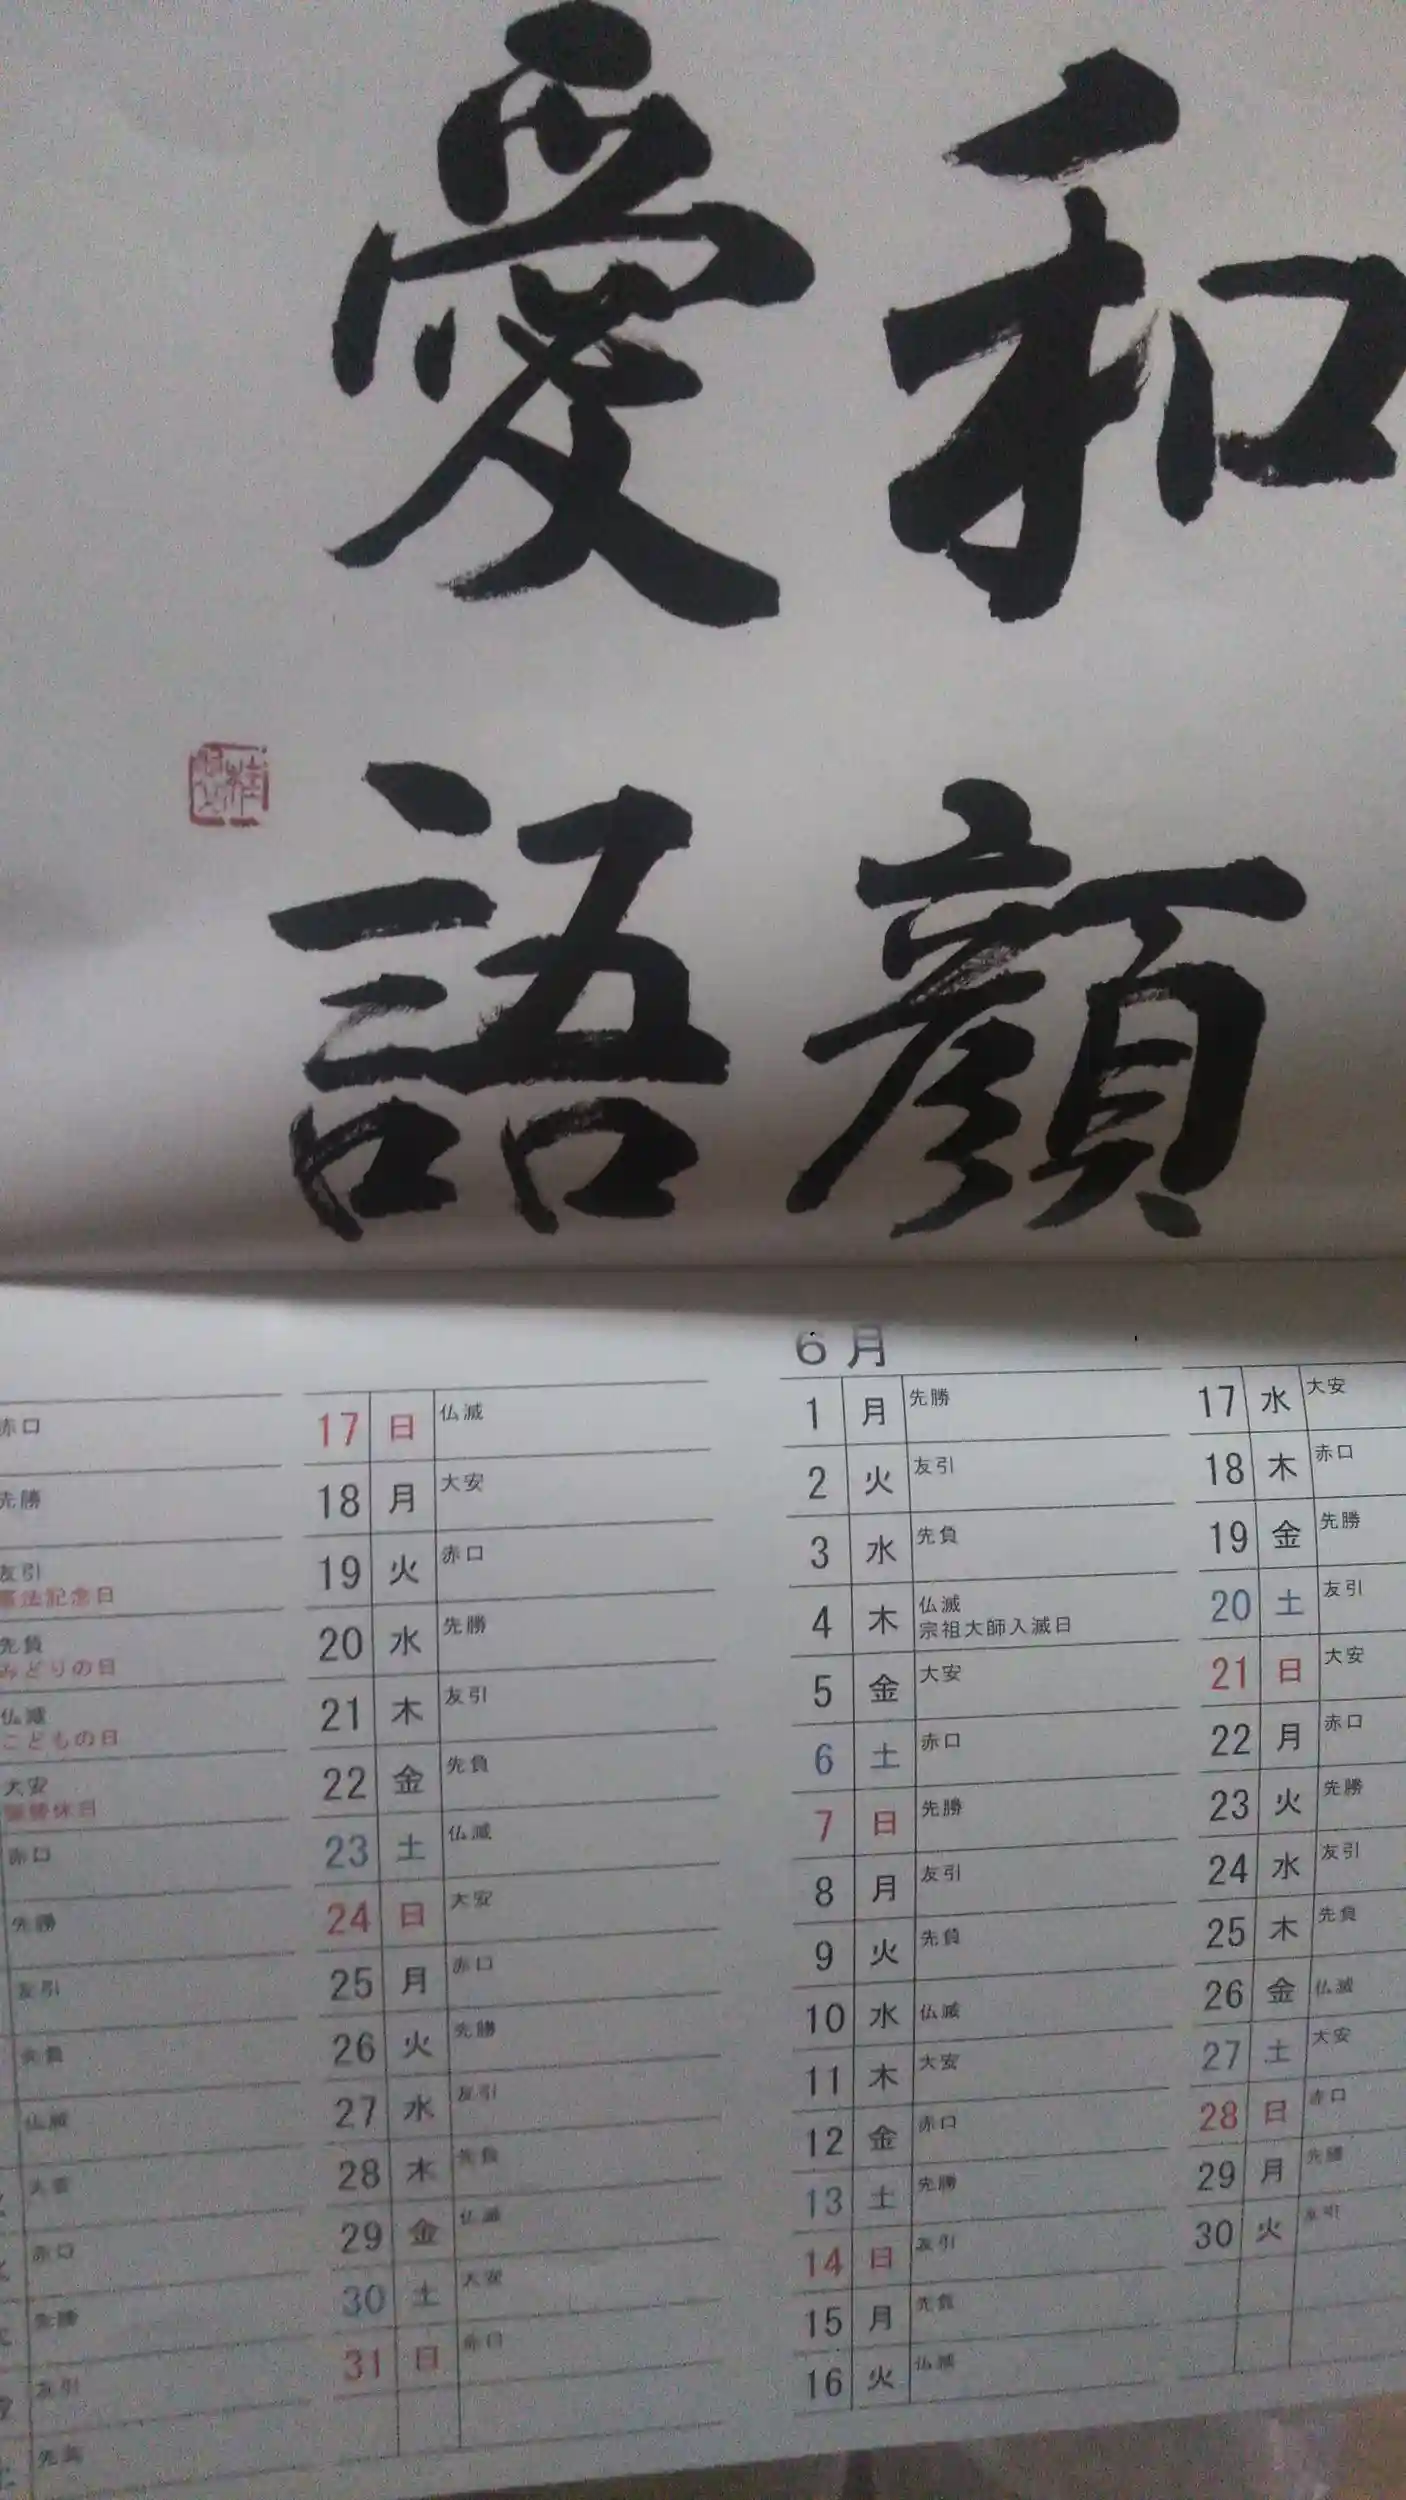 和顔
愛語
赤口
先勝
友引
憲法記念日
先負
みどりの日
仏滅
こどもの日
大安
振替休日
赤口
先勝
友引
先負
仏滅
大安
赤口
先勝
友引
先負
17 日 仏滅
18 月 大安
19 火 赤口
20 水 先勝
21 木 友引
22 金 先負
23 土 仏滅
24 日 大安
25 月 赤口
26 火 先勝
27 水 友引
28 木 先負
29 金 仏滅
30 土 大安
31 日 赤口
6月
1 月 先勝
2 火 友引
3 水 先負
4 木 仏滅
宗祖大師入滅日
5 金 大安
6 土 赤口
7 日 先勝
8 月 友引
9 火 先負
10 水 仏滅
11 木 大安
12 金 赤口
13 土 先勝
14 日 友引
15 月 先負
16 火 仏滅
17 水 大安
18 木 赤口
19 金 先勝
20 土 友引
21 日 大安
22 月 赤口
23 火 先勝
24 水 友引
25 木 先負
26 金 仏滅
27 土 大安
28 日 赤口
29 月 先勝
30 火 友引